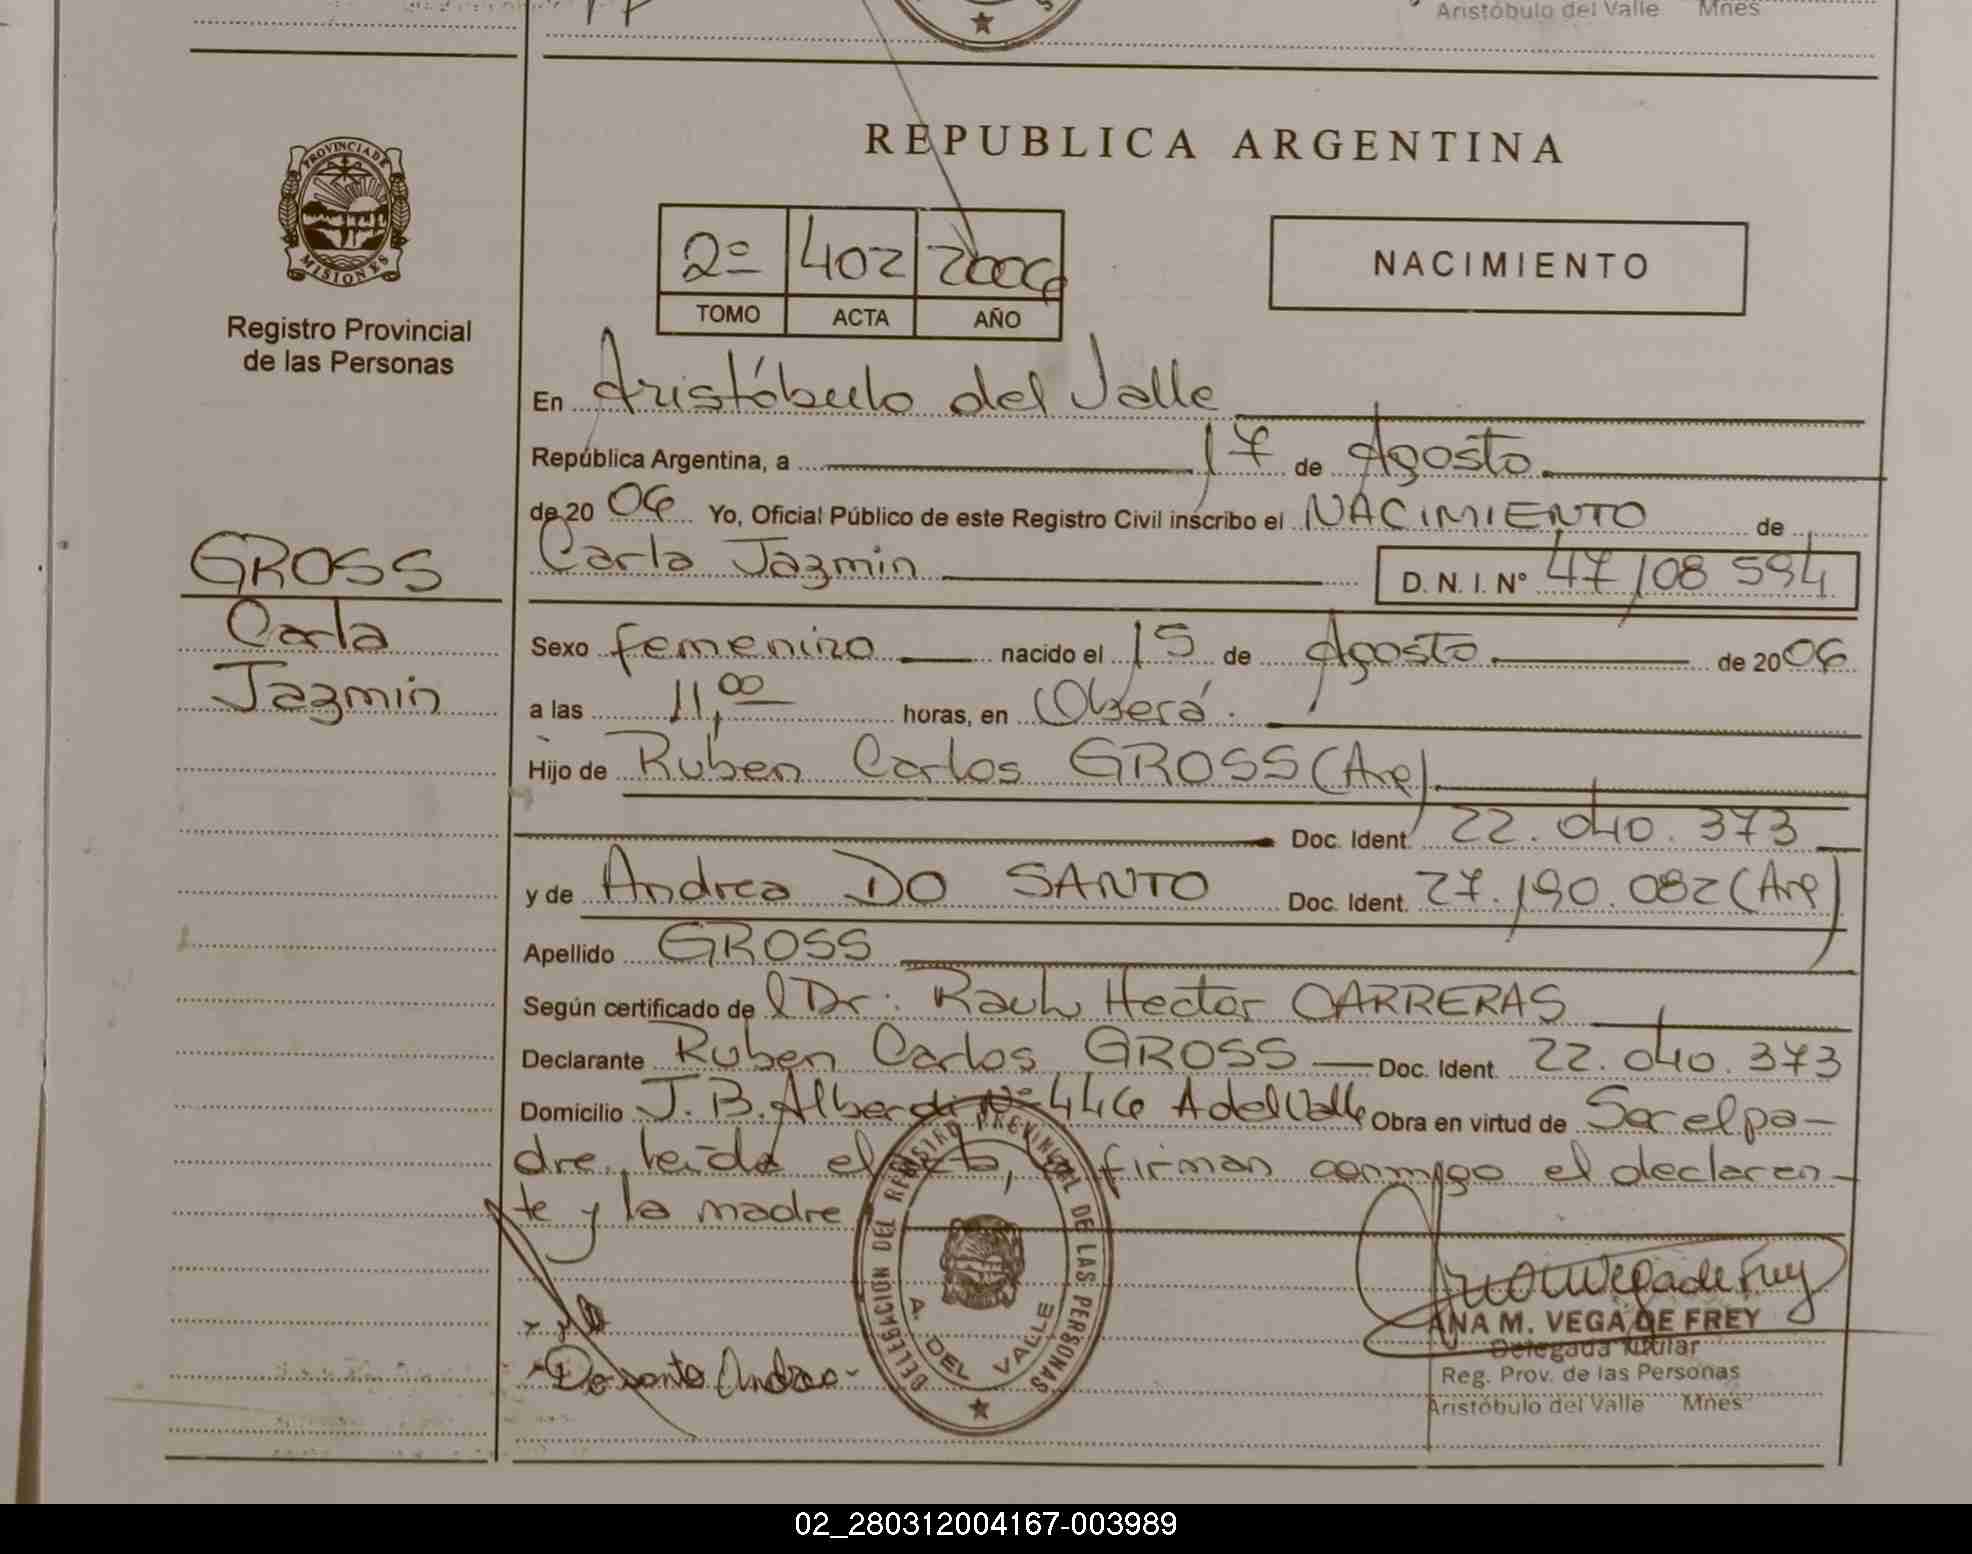 Aristóbulo del Valle Mnes
PROVINCIA DE
MISIONES
Registro Provincial
de las Personas
REPUBLICA ARGENTINA
2º 402 2006
TOMO ACTA AÑO
NACIMIENTO
En Aristóbulo del Valle
República Argentina, a 17 de Agosto
de 20 06 Yo, Oficial Público de este Registro Civil inscribo el NACIMIENTO de
Carla Jazmin D. N. I. N° 47 108 594
GROSS
Carla
Jazmin
Sexo femenino nacido el 15 de Agosto de 20 06
a las 11,00 horas, en Oberá.
Hijo de Ruben Carlos GROSS (Arg)
Doc. Ident. 22.040.373
y de Andrea DO SANTO Doc. Ident. 27.190.082 (Arg)
Apellido GROSS
Según certificado de l Dr. Raul Hector CARRERAS
Declarante Ruben Carlos GROSS Doc. Ident. 22.040.373
Domicilio J.B. Alberdi Nº 446 A del Valle Obra en virtud de Ser el pa-
dre, leída el acta, firman conmigo el declaran-
te y la madre
DELEGACION DEL REGISTRO PROVINCIAL DE LAS PERSONAS
A. DEL VALLE
Do santo Andrea
ANA M. VEGA DE FREY
Delegada Titular
Reg. Prov. de las Personas
Aristóbulo del Valle Mnes
02_280312004167-003989